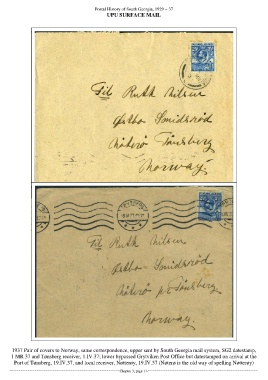 Postal History of South Georgia, 1929 – 37
UPU SURFACE MAIL
Ruth Nilsen
Smidsröd
Nöterö Tönsberg
Norway
Ruth Nilsen
Smidsröd
Nöterö Tönsberg
Norway.
1937 Pair of covers to Norway, same correspondence, upper sent by South Georgia mail system, SG2 datestamp,
1.MR.37 and Tønsberg receiver, 1.IV.37; lower bypassed Grytviken Post Office but datestamped on arrival at the
Port of Tønsberg, 19.IV.37, and local receiver, Nøtterøy, 19.IV.37 (Nøterø is the old way of spelling Nøtterøy)
Chapter 3, page